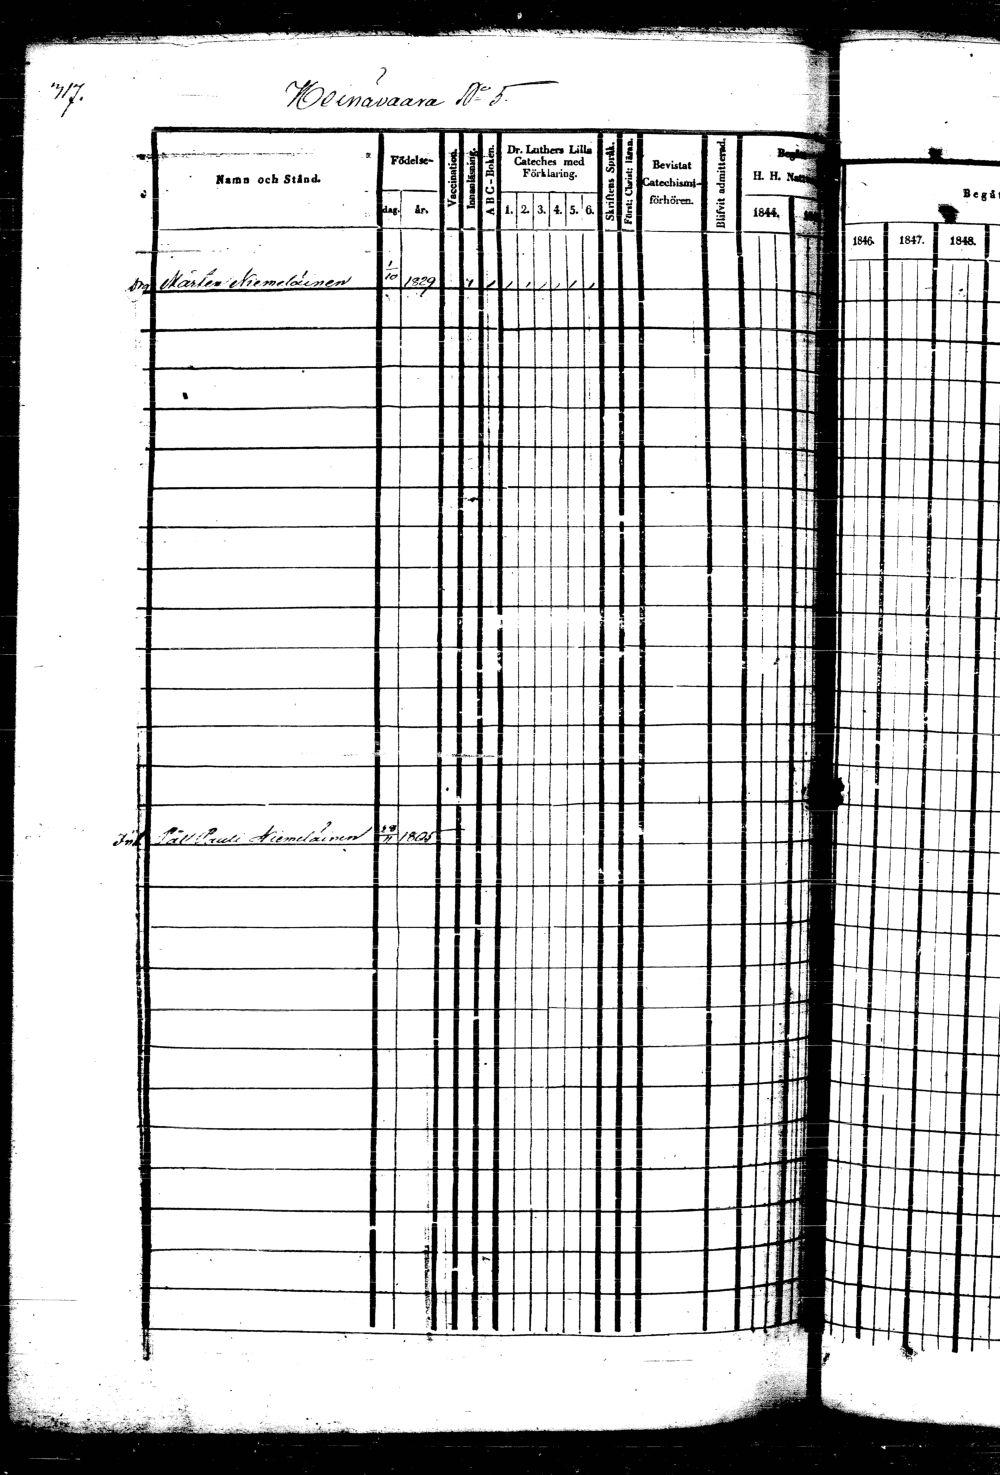 317.
Heinävaara No 5.
Namn och Stånd.
Födelse-
dag. år.
Vaccination.
Innanläsning.
A B C-Boken.
Dr. Luthers Lilla
Cateches med
Förklaring.
1. 2. 3. 4. 5. 6.
Skriftens Språk.
Först; Christ; läran.
Bevistat
Catechismi-
förhören.
Blifvit admitterad.
H. H.
1844.
1846. 1847. 1848.
Drg Mårten Niemeläinen 1/10 1829
Påll Pauli Niemeläinen 1805